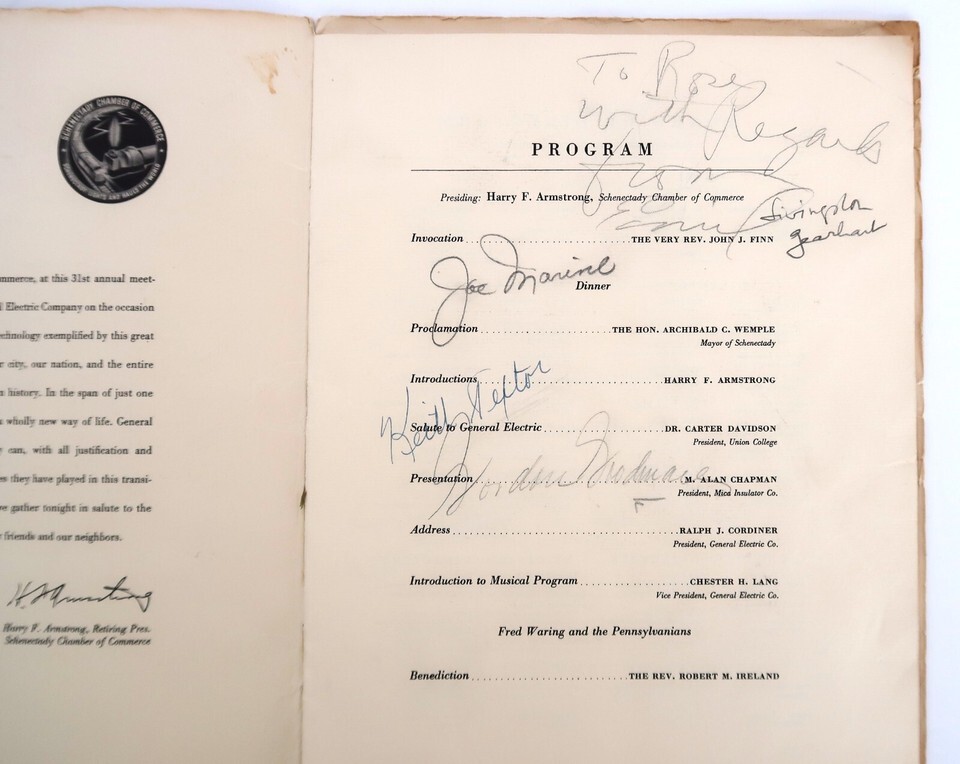 SCHENECTADY CHAMBER OF COMMERCE
LIGHTS AND HAULS THE WORLD
mmerce, at this 31st annual meet-
l Electric Company on the occasion
echnology exemplified by this great
r city, our nation, and the entire
n history. In the span of just one
a wholly new way of life. General
y can, with all justification and
es they have played in this transi-
ve gather tonight in salute to the
r friends and our neighbors.
H. F. Armstrong
Harry F. Armstrong, Retiring Pres.
Schenectady Chamber of Commerce
To Rose
With Regards
from
PROGRAM
Presiding: Harry F. Armstrong, Schenectady Chamber of Commerce
Livingston
Gearhart
Invocation ... THE VERY REV. JOHN J. FINN
Joe Marine
Dinner
Proclamation ... THE HON. ARCHIBALD C. WEMPLE
Mayor of Schenectady
Introductions ... HARRY F. ARMSTRONG
Keith Textor
Salute to General Electric ... DR. CARTER DAVIDSON
President, Union College
Gordon Goodman
Presentation ... M. ALAN CHAPMAN
President, Mica Insulator Co.
Address ... RALPH J. CORDINER
President, General Electric Co.
Introduction to Musical Program ... CHESTER H. LANG
Vice President, General Electric Co.
Fred Waring and the Pennsylvanians
Benediction ... THE REV. ROBERT M. IRELAND